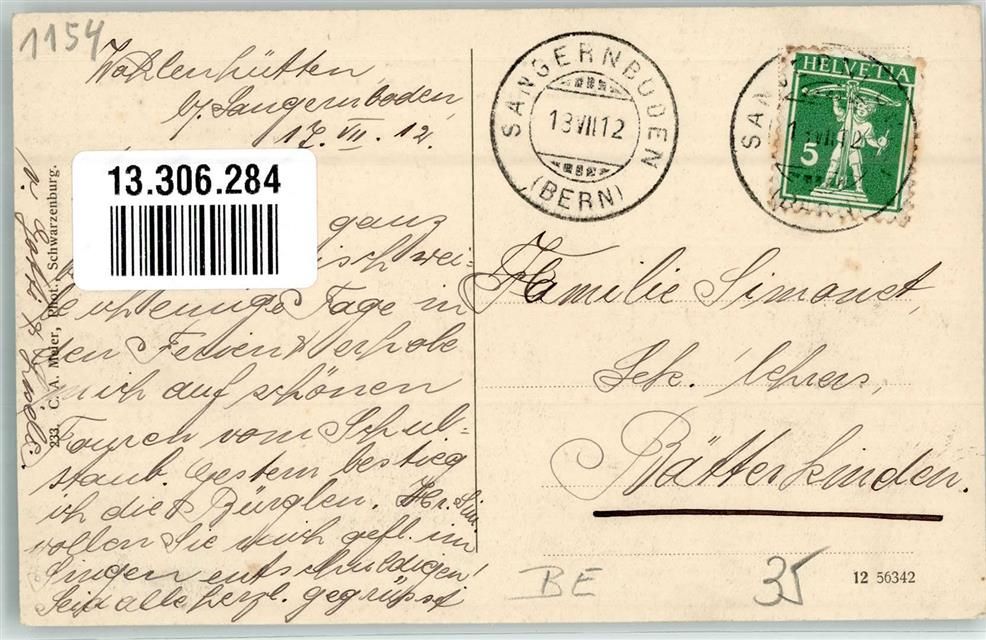 1154
Wahlenhütten
b/ Sangernboden,
17. VII. 12.
13.306.284
ganz
isch wei-
le ich einige Tage in
den Ferien & erhole
mich auf schönen
Touren vom Schul-
staub. Gestern bestieg
ich die Bürglen. Hr. Sim.
wollen Sie mich gefl. im
Singen entschuldigen!
Seid alle herzl. gegrüsst
v.
233. C. A. Meier, Phot., Schwarzenburg.
SANGERNBODEN
13 VII 12
(BERN)
HELVETIA
5
Familie Simonet,
Sek. lehrers,
Bätterkinden.
BE
35
12 56342